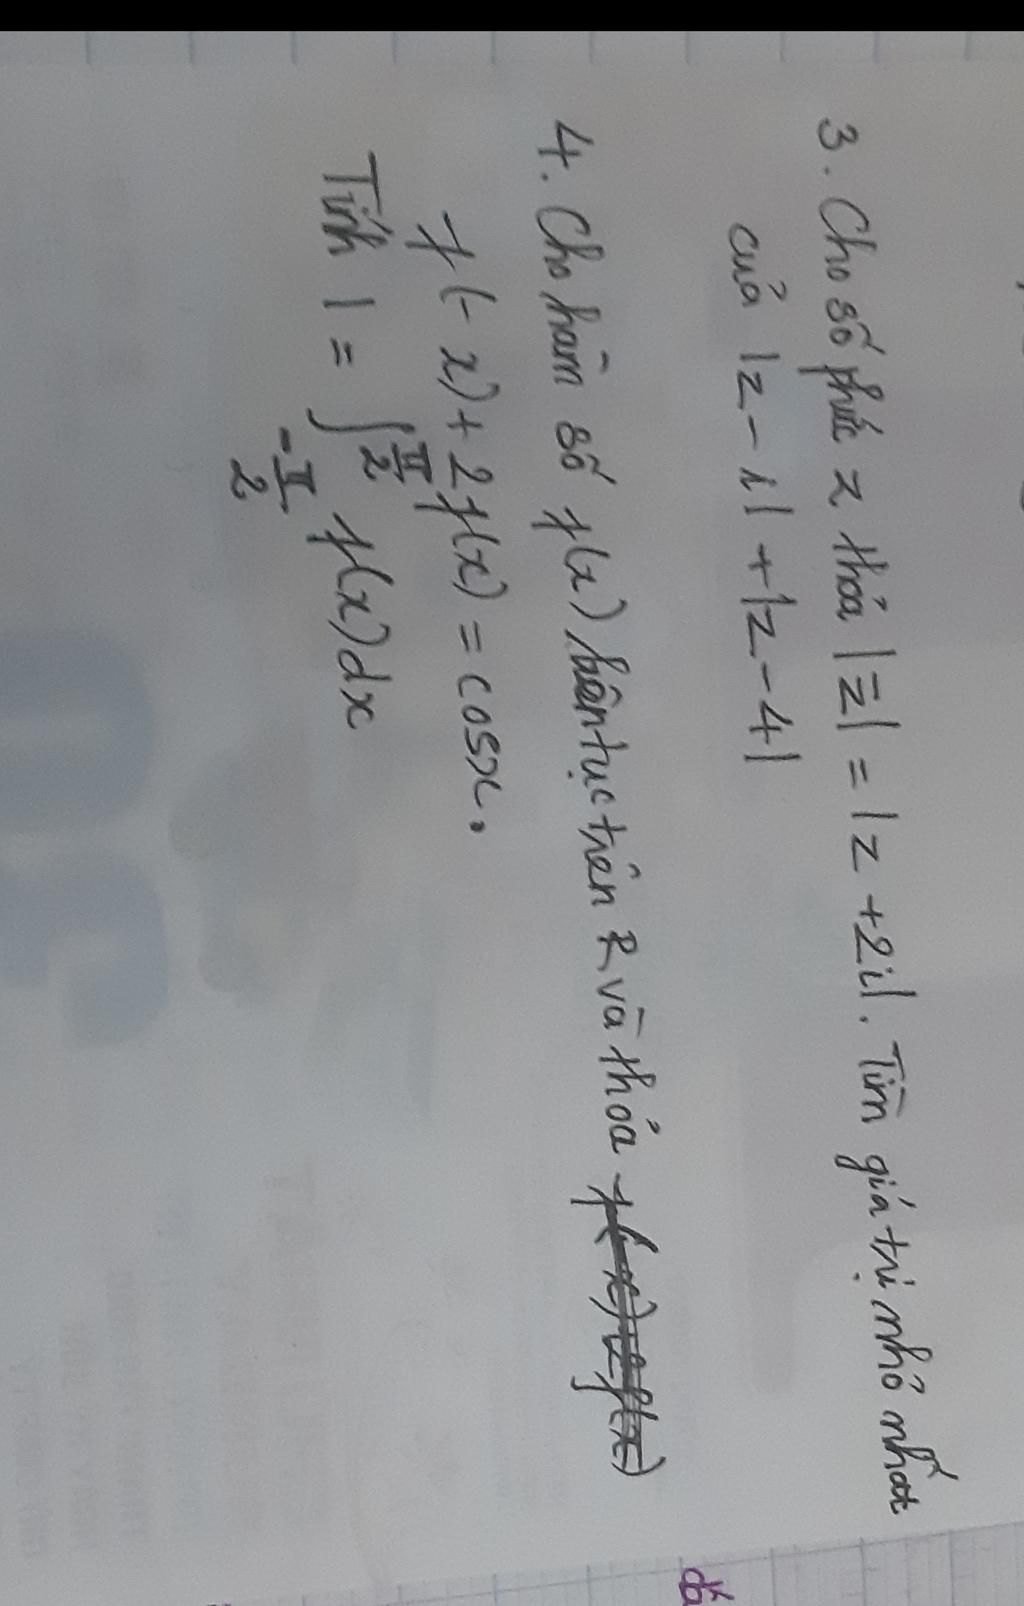 3. Cho số phức z thỏa |z̄| = |z + 2i|. Tìm giá trị nhỏ nhất
của |z - i| + |z - 4|
4. Cho hàm số f(x) liên tục trên R và thỏa f(-x)+2f(x)
f(-x) + 2f(x) = cosx.
Tính I = ∫ π/2 -π/2 f(x)dx